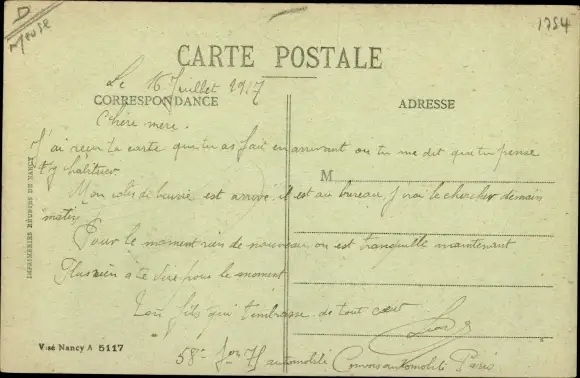 D
Meuse
1754
CARTE POSTALE
Le 16 Juillet 1917
CORRESPONDANCE
ADRESSE
Chère mère.
J'ai reçu ta carte que tu as fait en arrivant ou tu me dit que tu pense
t'y habituer.
M
Mon colis de beurre est arrivé il est au bureau j'irai le chercher demain
matin
Pour le moment rien de nouveau on est tranquille maintenant
Plus rien a te dire pour le moment
Ton fils qui t'embrasse de tout cœur
58e automobile Convois automobile Paris
IMPRIMERIES RÉUNIES DE NANCY
Visé Nancy A 5117